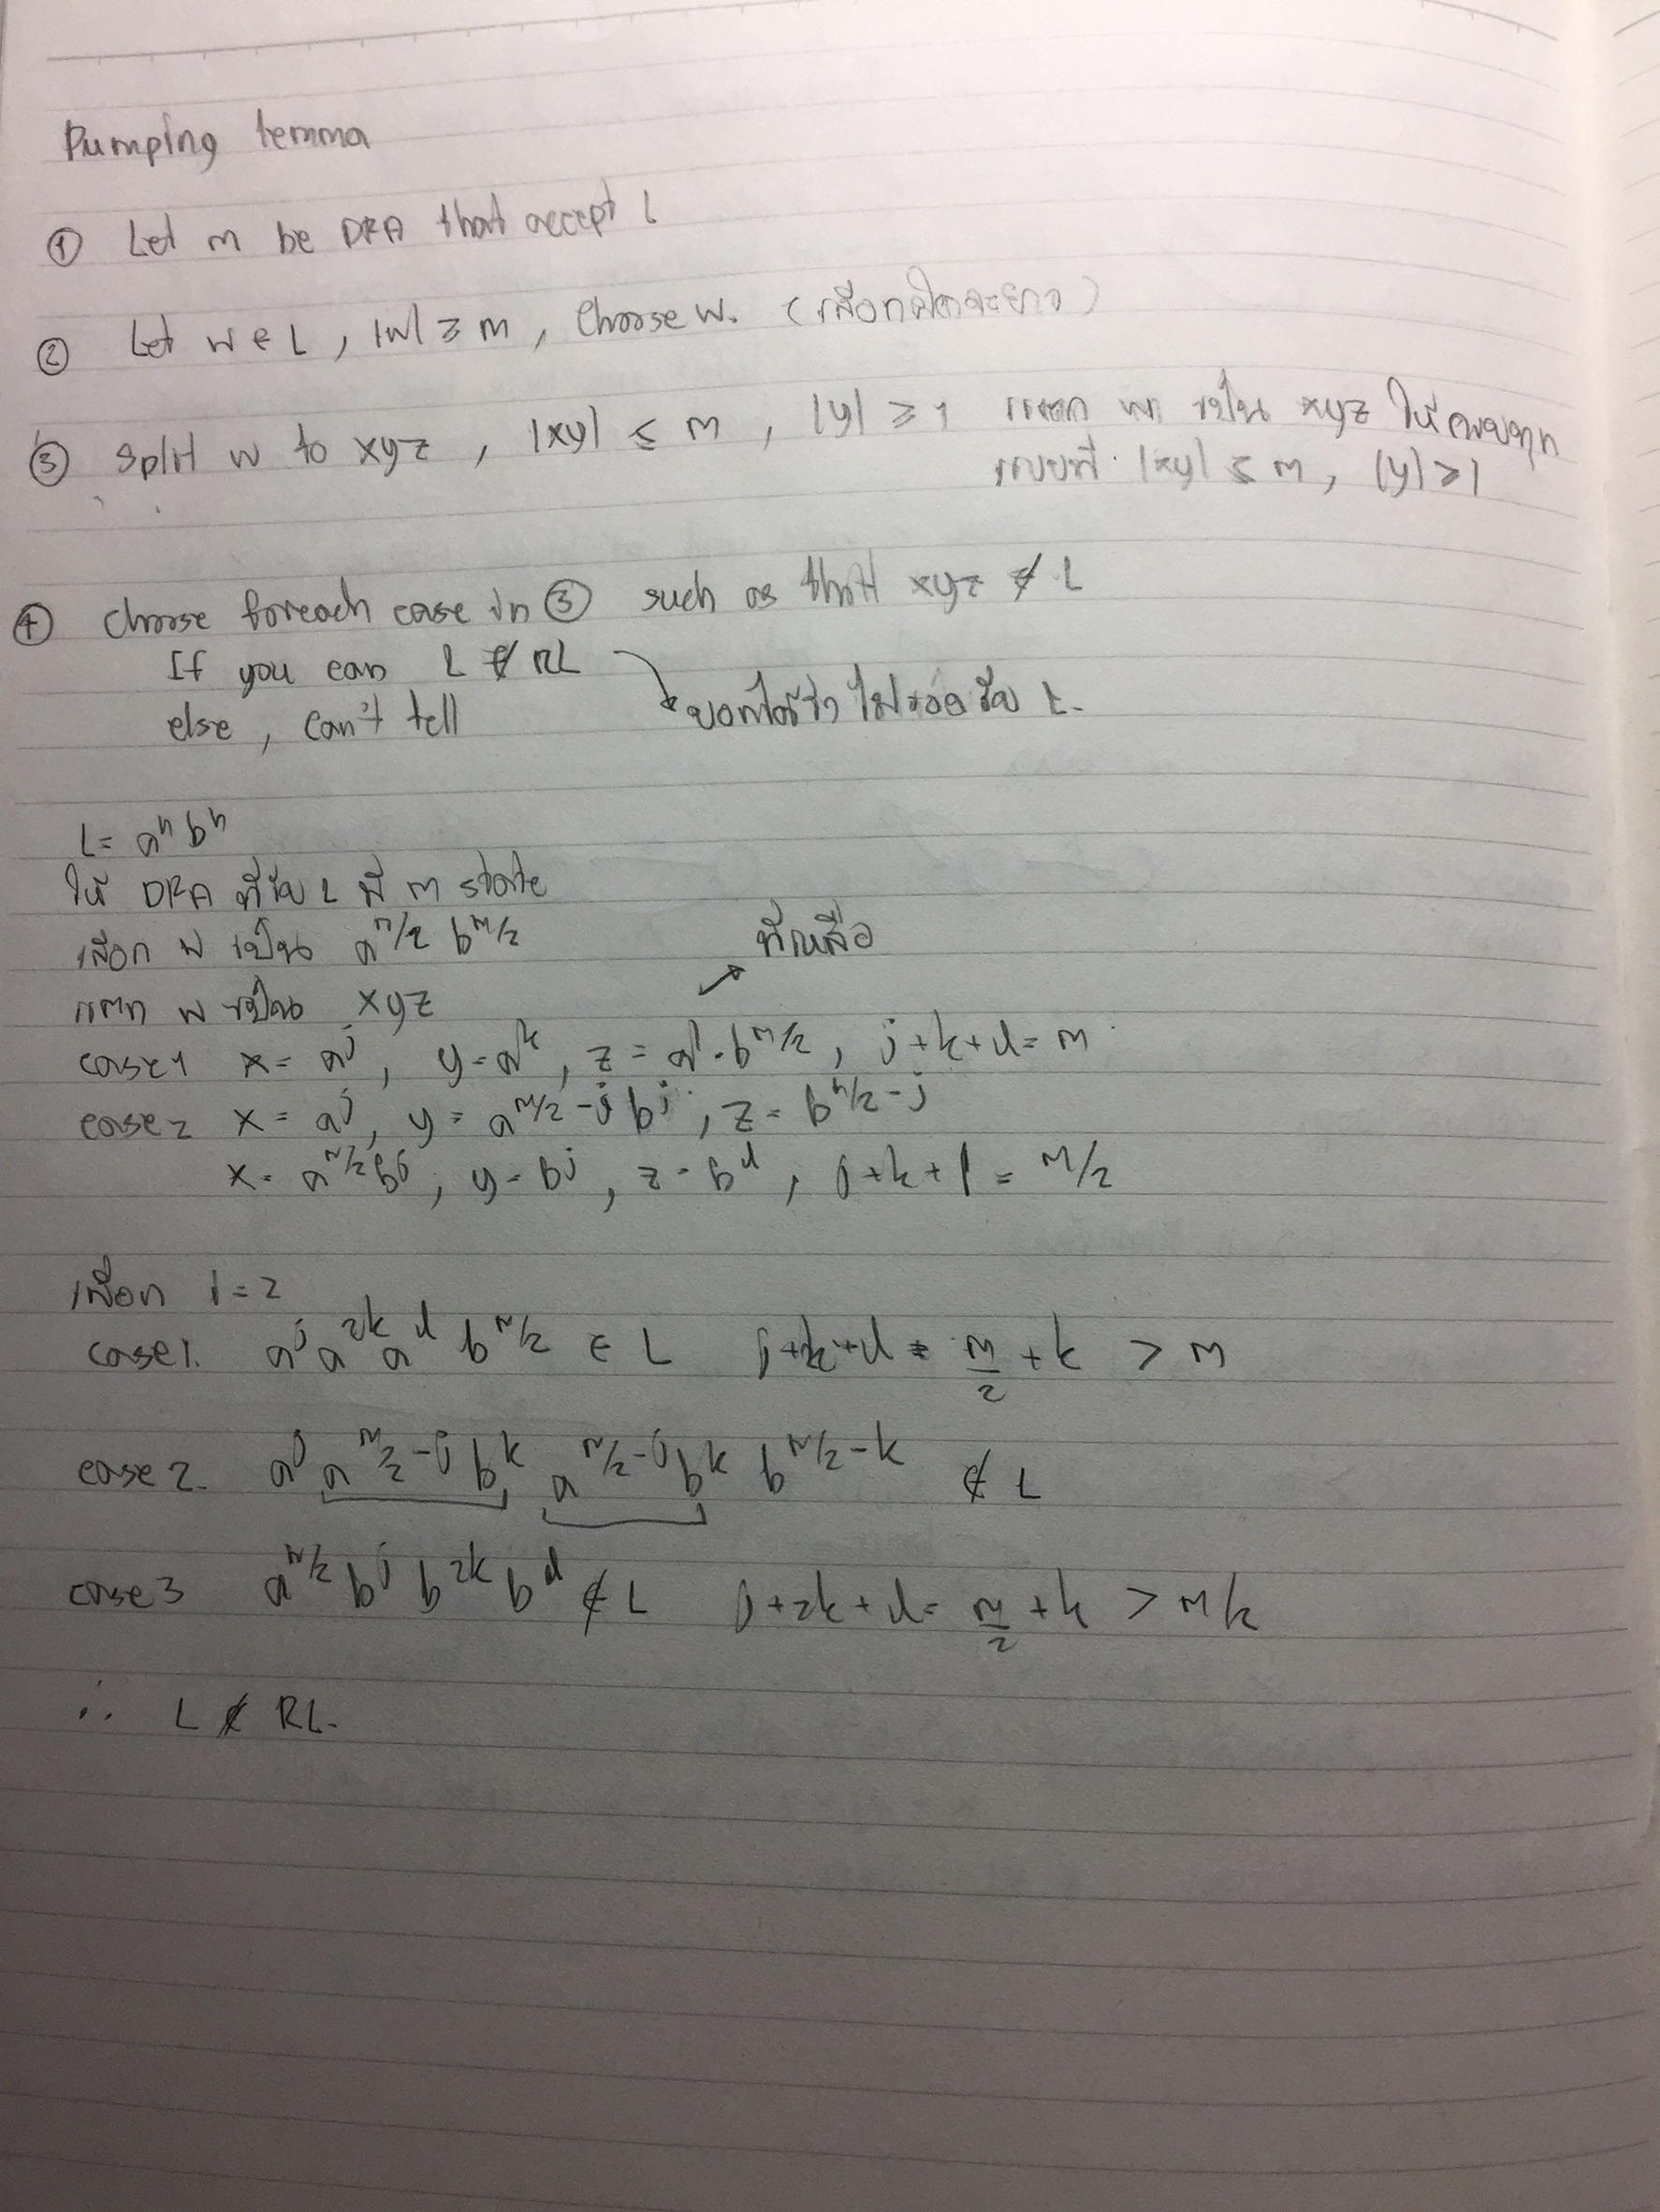 Pumping lemma
① Let m be DFA that accept L
② Let w ∈ L , |w| ≥ m , Choose w. (เลือกผิดจะยาว)
③ split w to xyz , |xy| ≤ m , |y| ≥ 1 แตก w เป็น xyz ให้ครบทุก
แบบที่ |xy| ≤ m, |y| ≥ 1
④ choose foreach case in ③ such as that xyz ∉ L
If you can L ∉ RL
else , can't tell บอกได้ว่า ไม่ L.
L = aⁿ bⁿ
ให้ DFA ที่รับ L มี m state
เลือก w เป็น a^m/2 b^m/2
ที่เหลือ
แตก w เป็น xyz
case1 x = a^j , y = a^k , z = a^l · b^m/2 , j+k+l = m
case2 x = a^j , y = a^m/2-j b^j , z = b^m/2-j
x = a^m/2 b^j , y = b^j , z = b^l , j+k+l = m/2
เลือก i = 2
case1. a^j a^2k a^l b^m/2 ∈ L j+k+l = m/2 + k > m
case2. a^j a^m/2-j b^k a^m/2-j b^k b^m/2-k ∉ L
case3 a^m/2 b^j b^2k b^l ∉ L j+2k+l = m/2 + k > m/2
∴ L ∉ RL.